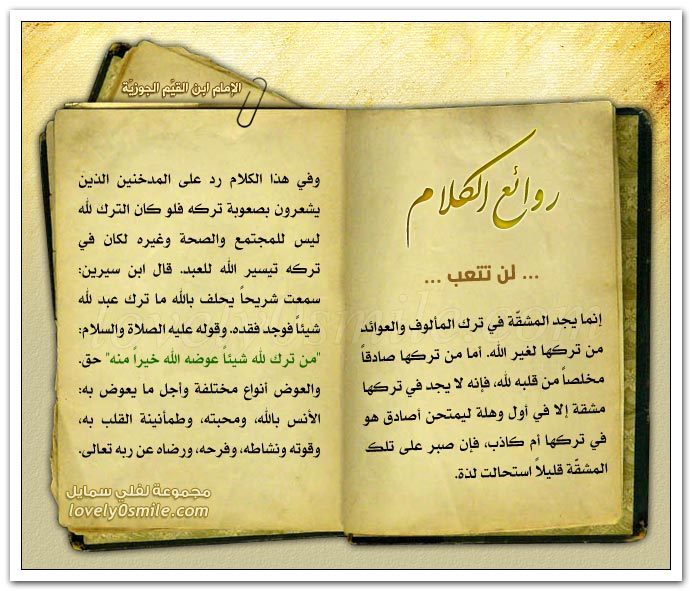 الإمام ابن القيّم الجوزيّة
روائع الكلام
... لن تتعب ...
إنما يجد المشقّة في ترك المألوف والعوائد
من تركها لغير الله. أما من تركها صادقاً
مخلصاً من قلبه لله، فإنه لا يجد في تركها
مشقة إلا في أول وهلة ليمتحن أصادق هو
في تركها أم كاذب، فإن صبر على تلك
المشقّة قليلاً استحالت لذة.
وفي هذا الكلام رد على المدخنين الذين
يشعرون بصعوبة تركه فلو كان الترك لله
ليس للمجتمع والصحة وغيره لكان في
تركه تيسير الله للعبد. قال ابن سيرين:
سمعت شريحاً يحلف بالله ما ترك عبد لله
شيئاً فوجد فقده. وقوله عليه الصلاة والسلام:
"من ترك لله شيئاً عوضه الله خيراً منه" حق.
والعوض أنواع مختلفة وأجل ما يعوض به:
الأنس بالله، ومحبته، وطمأنينة القلب به،
وقوته ونشاطه، وفرحه، ورضاه عن ربه تعالى.
مجموعة لفلي سمايل
lovely0smile.com